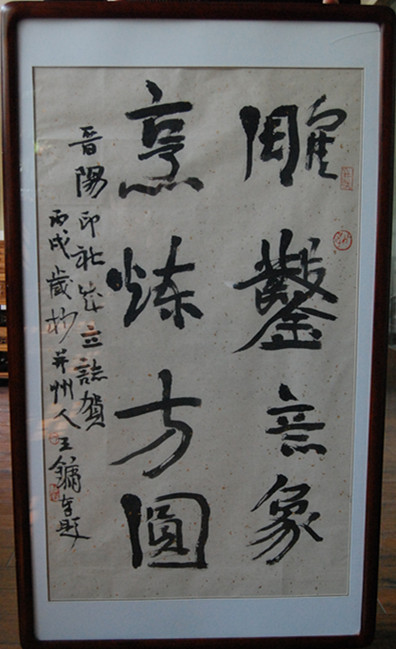 雕鑿意象
烹炼方圓
晋陽印社成立誌賀
丙戌歲杪并州人王鏞車題